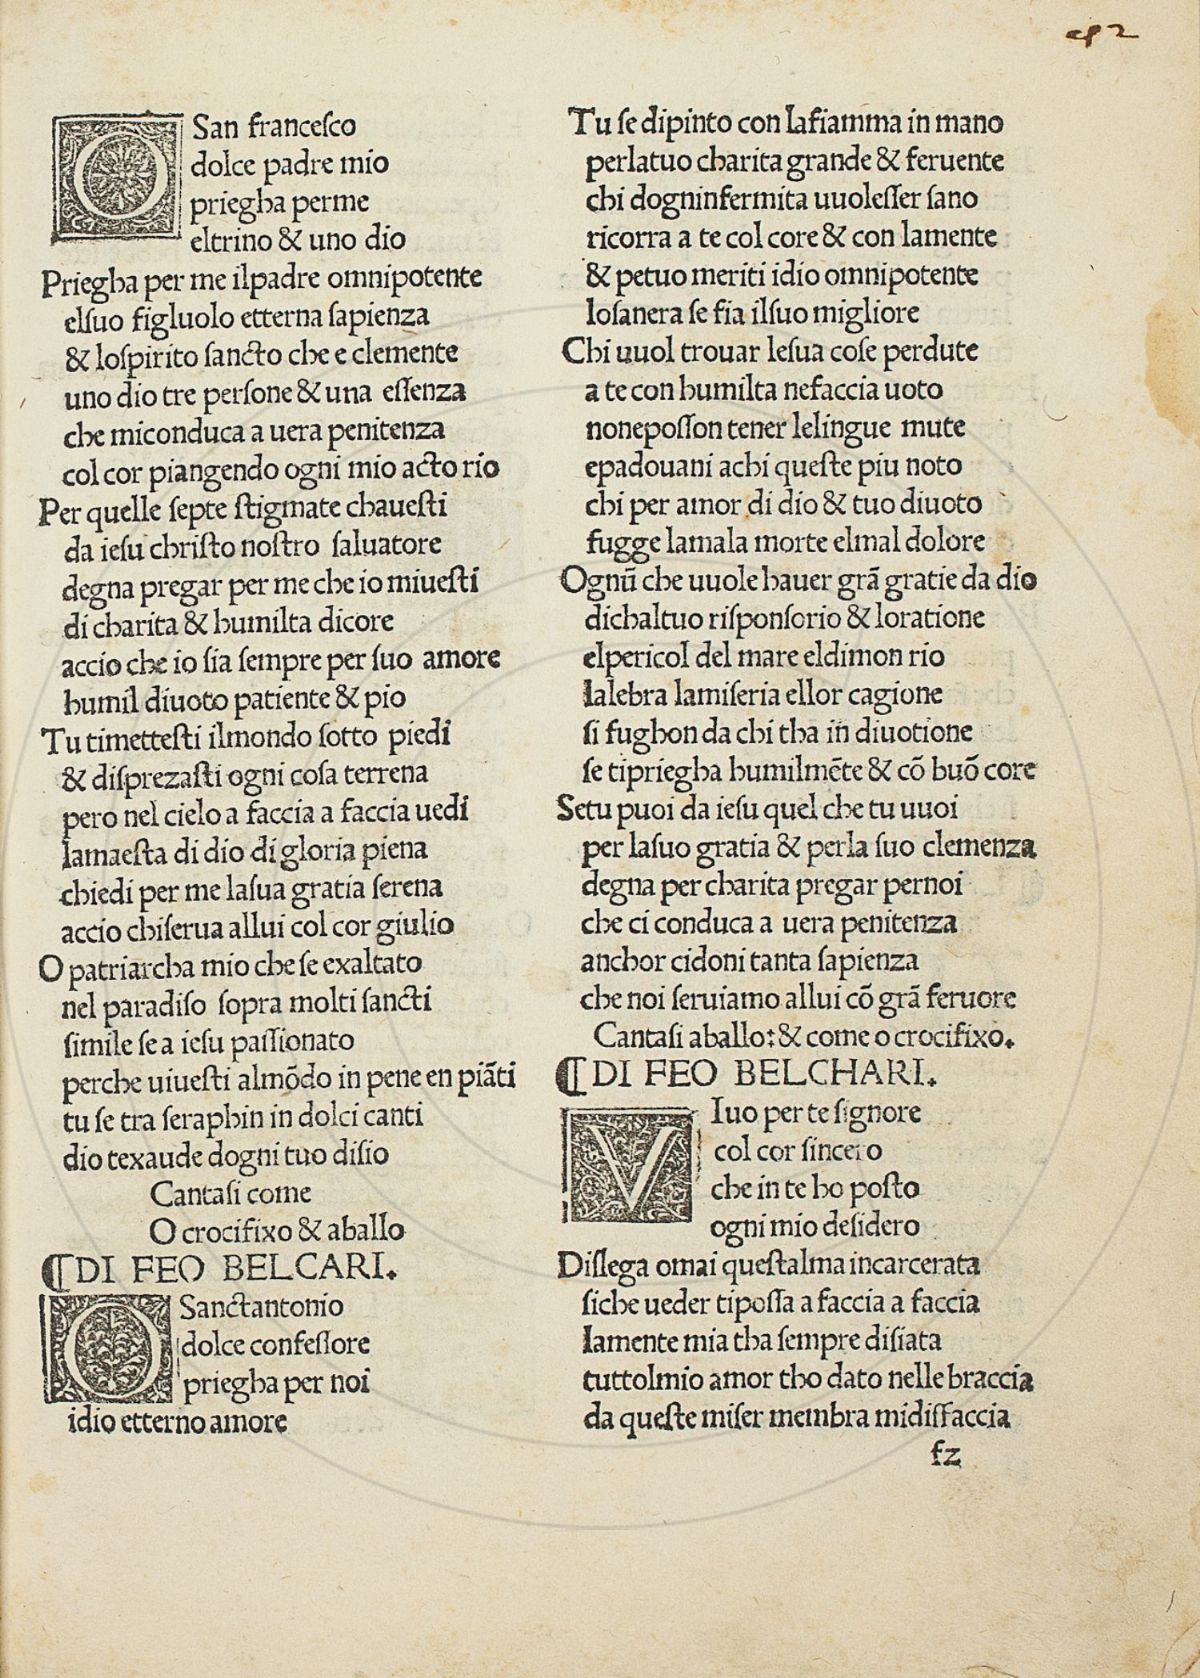 O San francesco
dolce padre mio
priegha perme
eltrino & uno dio
Priegha per me ilpadre omnipotente
elsuo figluolo etterna sapienza
& lospirito sancto che e clemente
uno dio tre persone & una essenza
che miconduca a uera penitenza
col cor piangendo ogni mio acto rio
Per quelle septe stigmate chauesti
da iesu christo nostro saluatore
degna pregar per me che io miuesti
di charita & humilta dicore
accio che io sia sempre per suo amore
humil diuoto patiente & pio
Tu timettesti ilmondo sotto piedi
& disprezasti ogni cosa terrena
pero nel cielo a faccia a faccia uedi
lamaesta di dio di gloria piena
chiedi per me lasua gratia serena
accio chiserua allui col cor giulio
O patriarcha mio che se exaltato
nel paradiso sopra molti sancti
simile se a iesu passionato
perche uiuesti almōdo in pene en piāti
tu se tra seraphin in dolci canti
dio texaude dogni tuo disio
Cantasi come
O crocifixo & aballo
¶DI FEO BELCARI.
O Sanctantonio
dolce confessore
priegha per noi
idio etterno amore
Tu se dipinto con lafiamma in mano
perlatuo charita grande & feruente
chi dogninfermita uuolesser sano
ricorra a te col core & con lamente
& petuo meriti idio omnipotente
losanera se fia ilsuo migliore
Chi uuol trouar lesua cose perdute
a te con humilta nefaccia uoto
noneposson tener lelingue mute
epadouani achi queste piu noto
chi per amor di dio & tuo diuoto
fugge lamala morte elmal dolore
Ognū che uuole hauer grā gratie da dio
dichaltuo risponsorio & loratione
elpericol del mare eldimon rio
lalebra lamiseria ellor cagione
si fughon da chi tha in diuotione
se tipriegha humilmēte & cō buō core
Setu puoi da iesu quel che tu uuoi
per lasuo gratia & perla suo clemenza
degna per charita pregar pernoi
che ci conduca a uera penitenza
anchor cidoni tanta sapienza
che noi seruiamo allui cō grā feruore
Cantasi aballo: & come o crocifixo.
¶DI FEO BELCHARI.
VIuo per te signore
col cor sincero
che in te ho posto
ogni mio desidero
Dislega omai questalma incarcerata
siche ueder tipossa a faccia a faccia
lamente mia tha sempre disiata
tuttolmio amor tho dato nelle braccia
da queste miser membra midisfaccia
fz